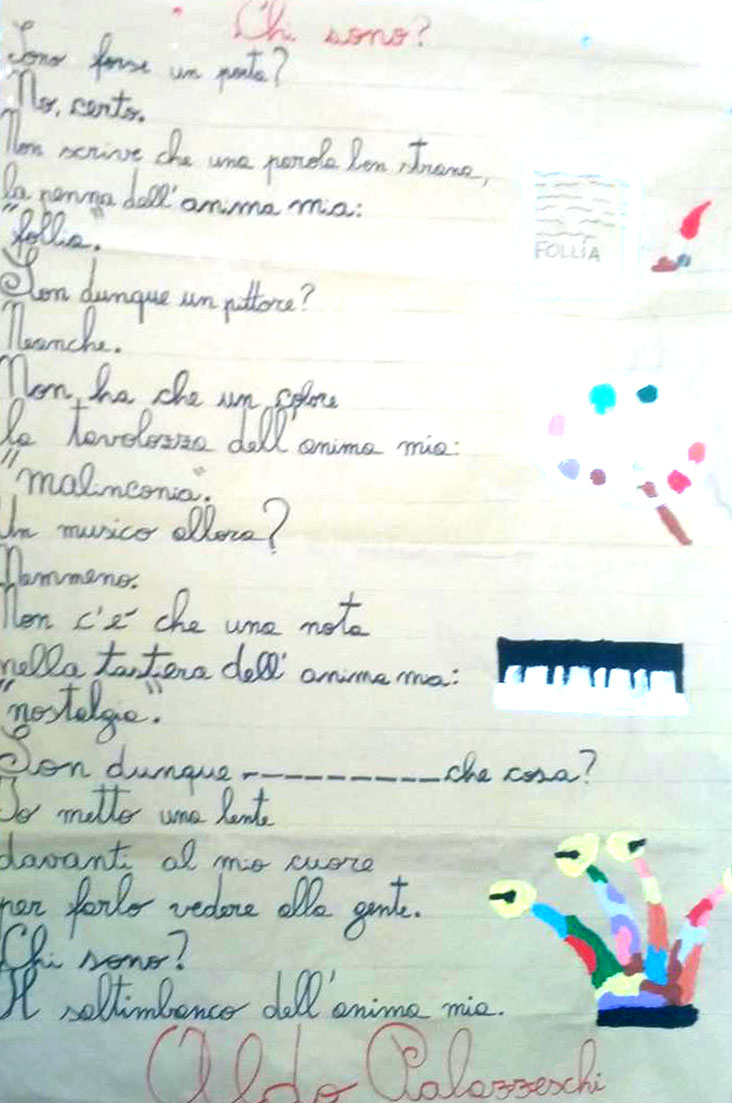 Chi sono?
Sono forse un poeta?
No, certo.
Non scrive che una parola ben strana,
la penna dell'anima mia:
"follia".
FOLLÍA
Son dunque un pittore?
Neanche.
Non ha che un colore
la tavolozza dell'anima mia:
"malinconia".
Un musico allora?
Nemmeno.
Non c'è che una nota
nella tastiera dell'anima mia:
"nostalgia".
Son dunque ---------- che cosa?
Io metto una lente
davanti al mio cuore
per farlo vedere alla gente.
Chi sono?
Il saltimbanco dell'anima mia.
Aldo Palazzeschi